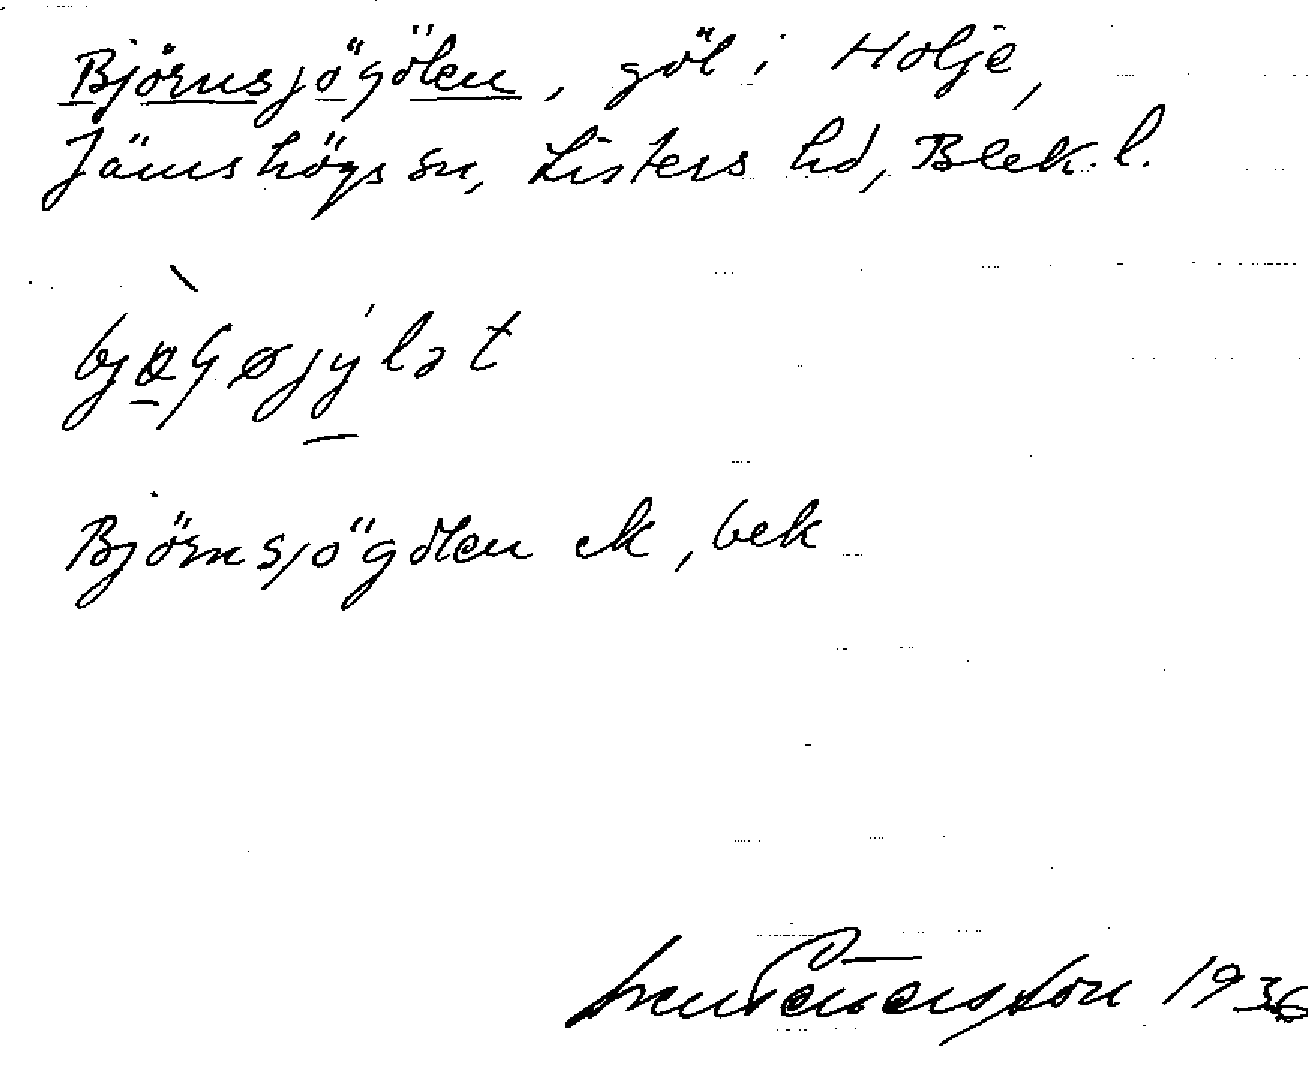 Björnsjögölen, göl i Holje,
Jämshögs sn, Listers hd, Blek. l.
Björnsjögölen ek, bek
1936